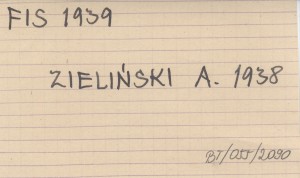 FIS 1939
ZIELIŃSKI A. 1938
BT/055/2090